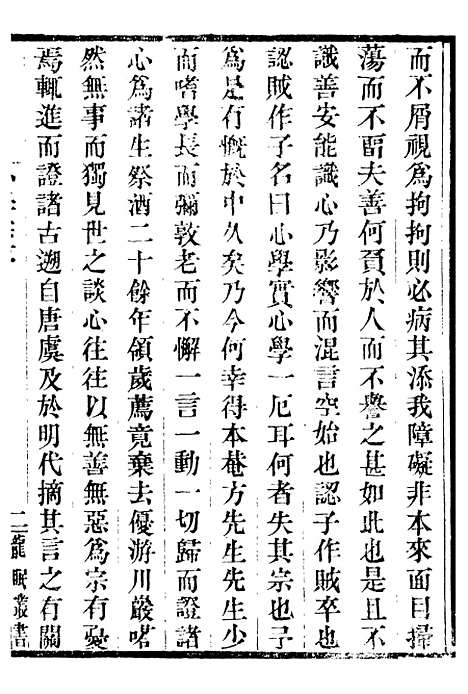 而不屑視爲拘拘則必病其添我障礙非本來面目掃
蕩而不畱夫善何負於人而不譽之甚如此也是且不
識善安能識心乃影響而混言空始也認子作賊卒也
認賊作子名曰心學實心學一厄耳何者失其宗也予
爲是有慨於中久矣乃今何幸得本菴方先生先生少
而嗜學長而彌敦老而不懈一言一動一切歸而證諸
心爲諸生祭酒二十餘年領歲薦竟棄去優游川巖嗒
然無事而獨見世之談心往往以無善無惡爲宗有憂
焉輒進而證諸古遡自唐虞及於明代摘其言之有關
二 龍眠叢書